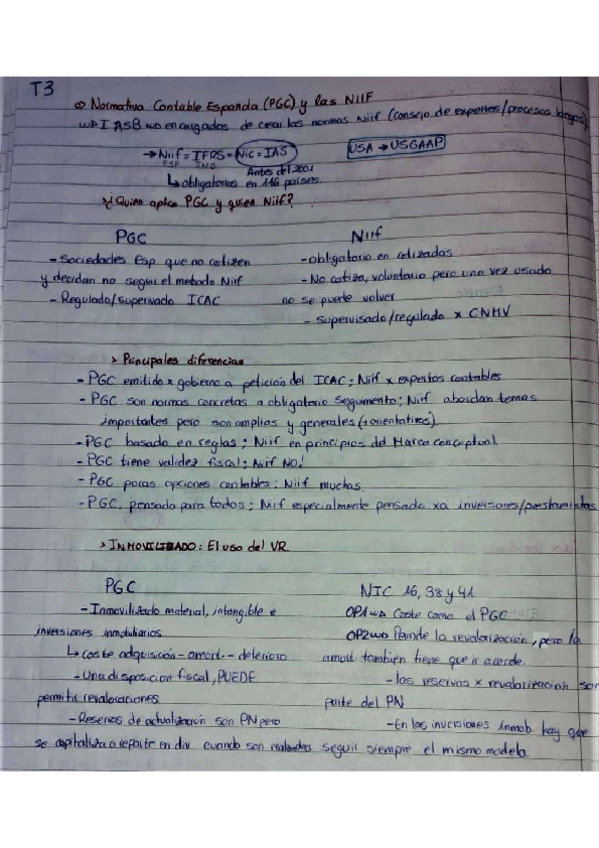 T3
Normativa Contable Española (PGC) y las NIIF
IASB encargados de crear las normas Niif (consejo de expertos/procesos largos)
→ Niif = IFRS = Nic = IAS
ESP ING
USA → USGAAP
Antes del 2001
↳ obligatorios en 116 países.
¿Quien aplica PGC y quien Niif?
PGC
- Sociedades Esp que no cotizen
y decidan no seguir el metodo Niif
- Regulado/supervado ICAC
Niif
- obligatorio en cotizados
- No cotiza, voluntario pero una vez usado
no se puede volver
- supervisado/regulado x CNMV
> Principales diferencias
- PGC emitido x gobierno a petición del ICAC; Niif x expertos contables.
- PGC son normas concretas a obligatorio seguimento; Niif abordan temas
importantes pero son amplias y generales (+orientativos).
- PGC basado en reglas; Niif en principios del Marco conceptual
- PGC tiene validez fiscal; Niif NO!
- PGC pocas opciones contables; Niif muchas
- PGC. pensado para todos; Niif especialmente pensada xa inversores/prestamistas
> INMOVILIZADO: El uso del VR.
PGC
- Inmovilizado material, intangible e
inversiones inmobiliarios
↳ coste adquisición - amort. - deterioro
- Una disposicion fiscal, PUEDE
permitir revaloraciones
- Reservas de actualización son PN pero
se capitaliza o reparte en div cuando son realizados
NIC 16, 38 y 41
OP1 Coste como el PGC
OP2 Permite la revalorización, pero la
amort tambien tiene que ir acorde.
- las reservas x revalorización son
parte del PN
- En las inversiones inmob. hay que
seguir siempre el mismo modelo.